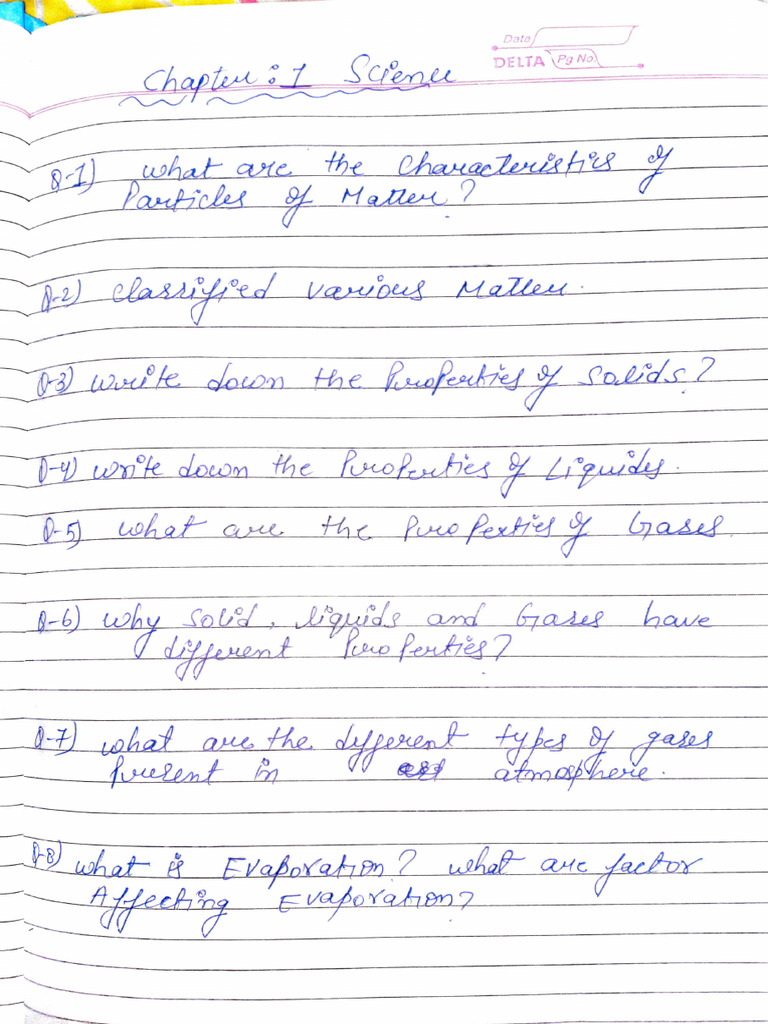 Date
DELTA Pg No
Chapter : 1 Science
Q-1) what are the characteristics of
Particles of Matter?
Q-2) classified various Matter.
Q-3) write down the Properties of Solids?
Q-4) write down the Properties of Liquides.
Q-5) what are the properties of Gases.
Q-6) why solid, liquids and Gases have
different Properties?
Q-7) what are the different types of gases
present in atmosphere.
Q-8) what is Evaporation? what are factor
Affecting Evaporation?